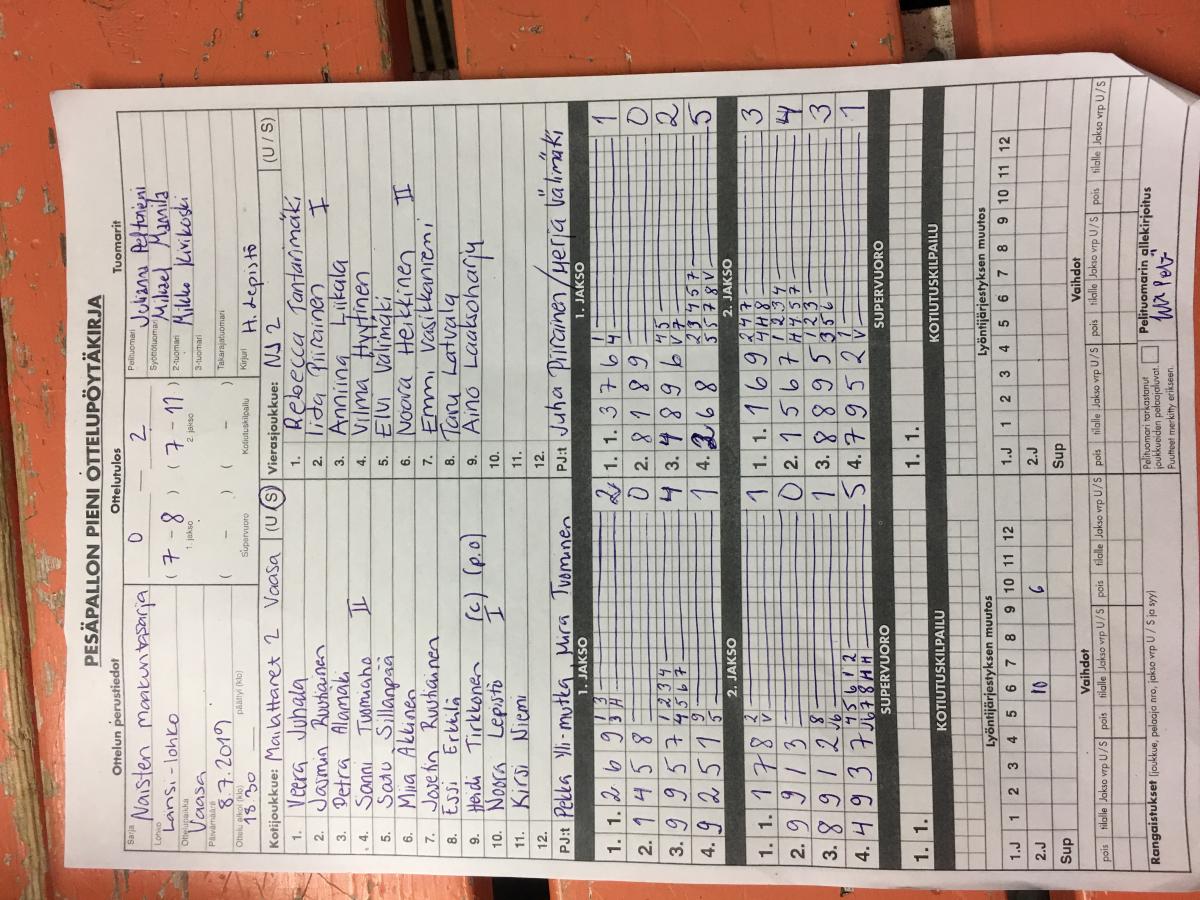 PESÄPALLON PIENI OTTELUPÖYTÄKIRJA
Ottelun perustiedot
Ottelutulos
Tuomarit
Sarja Naisten maakuntasarja
Lohko Länsi-lohko
Ottelupaikka Vaasa
Päivämäärä 8.7.2019
Ottelu alkoi (klo) 18 30 päättyi (klo)
0 — 2
( 7 - 8 ) ( 7 - 11 )
1. jakso 2. jakso
( - ) ( - )
Supervuoro Kotiutuskilpailu
Pelituomari Julianna Peltoniemi
Syöttötuomari Mikael Mannila
2-tuomari Mikko Kivikoski
3-tuomari
Takarajatuomari
Kirjuri H. Lepistö
Kotijoukkue: Mailattaret 2 Vaasa (U / S)
1. Veera Juhala
2. Jasmin Ruotsalainen
3. Petra Alamäki
4. Sanni Tuomisto II
5. Satu Sillanpää
6. Miia Äkkinen
7. Josefin Ruutiainen
8. Essi Erkkilä
9. Heidi Tirkkonen (c) (p.o)
10. Noora Lepistö I
11. Kirsi Niemi
12.
PJ:t Pekka Yli-mutka, Mira Tuominen
Vierasjoukkue: NJ 2 (U / S)
1. Rebecca Rantarimäki
2. Iida Piirainen I
3. Anniina Liikala
4. Vilma Hyytinen
5. Elvi Välimäki
6. Noora Heikkinen II
7. Emmi Vasikkaniemi
8. Taru Latvala
9. Aino Laaksoharju
10.
11.
12.
PJ:t Juha Piirainen/Merja Välimäki
1. JAKSO
1. 1. 2 6 9 1 3 2
3 H
2. 1 4 5 8 0
3. 9 9 5 7 1 2 3 4 4
4 5 6 7
4. 9 2 5 1 9 1
5
2. JAKSO
1. 1. 1 7 8 2 1
V
2. 9 9 1 3 0
3. 8 9 1 2 8 1
4. 4 9 3 7 4 5 6 1 2 5
SUPERVUORO
1. 1.
KOTIUTUSKILPAILU
1. JAKSO
1. 1. 3 7 6 1 1
4
2. 8 1 8 9 0
3. 4 8 9 6 4 5 2
V 7
4. 2 6 8 2 3 4 5 7 5
5 5 7 8 V
2. JAKSO
1. 1. 1 6 9 2 4 7 3
4 H 8
2. 1 5 6 7 1 2 3 4 4
H 4 5 7
3. 8 8 9 5 1 2 3 3
3 5 6
4. 7 9 5 2 1 1
V
SUPERVUORO
1. 1.
KOTIUTUSKILPAILU
Lyöntijärjestyksen muutos
1.J 1 2 3 4 5 6 7 8 9 10 11 12
2.J 10 6
Sup
Vaihdot
pois tilalle Jakso vrp U / S pois tilalle Jakso vrp U / S pois tilalle Jakso vrp U / S
Lyöntijärjestyksen muutos
1.J 1 2 3 4 5 6 7 8 9 10 11 12
2.J
Sup
Vaihdot
pois tilalle Jakso vrp U / S pois tilalle Jakso vrp U / S pois tilalle Jakso vrp U / S
Rangaistukset (joukkue, pelaaja nro, jakso vrp U / S ja syy)
Pelituomari tarkastanut
joukkueiden pelaajaluvat.
Puutteet merkitty erikseen.
Pelituomarin allekirjoitus